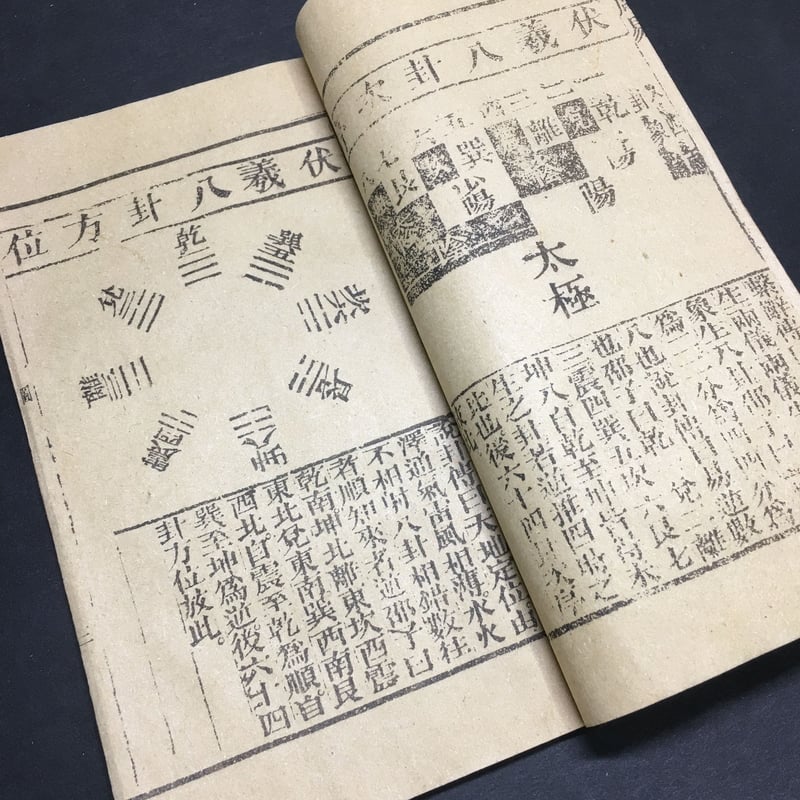 伏羲八卦次
一二三四五六七
乾
離
巽
艮
陽
陽
太極
繫辭傳
生兩儀兩儀生
象生八卦邵子曰
爲二二分爲四四分爲
八也說卦傳曰易逆數
也邵子曰乾一兌二離
三震四巽五坎六艮七
坤八自乾至坤皆得未
生之卦若逆推四時之
比也後六十四卦次序
放此
伏羲八卦方位
乾一
巽五
坎六
艮七
坤八
震四
離三
兌二
說卦傳曰天地定位山
澤通氣雷風相薄水火
不相射八卦相錯數往
者順知來者逆邵子曰
乾南坤北離東坎西震
東北兌東南巽西南艮
西北自震至乾爲順自
巽至坤爲逆後六十四
卦方位放此。